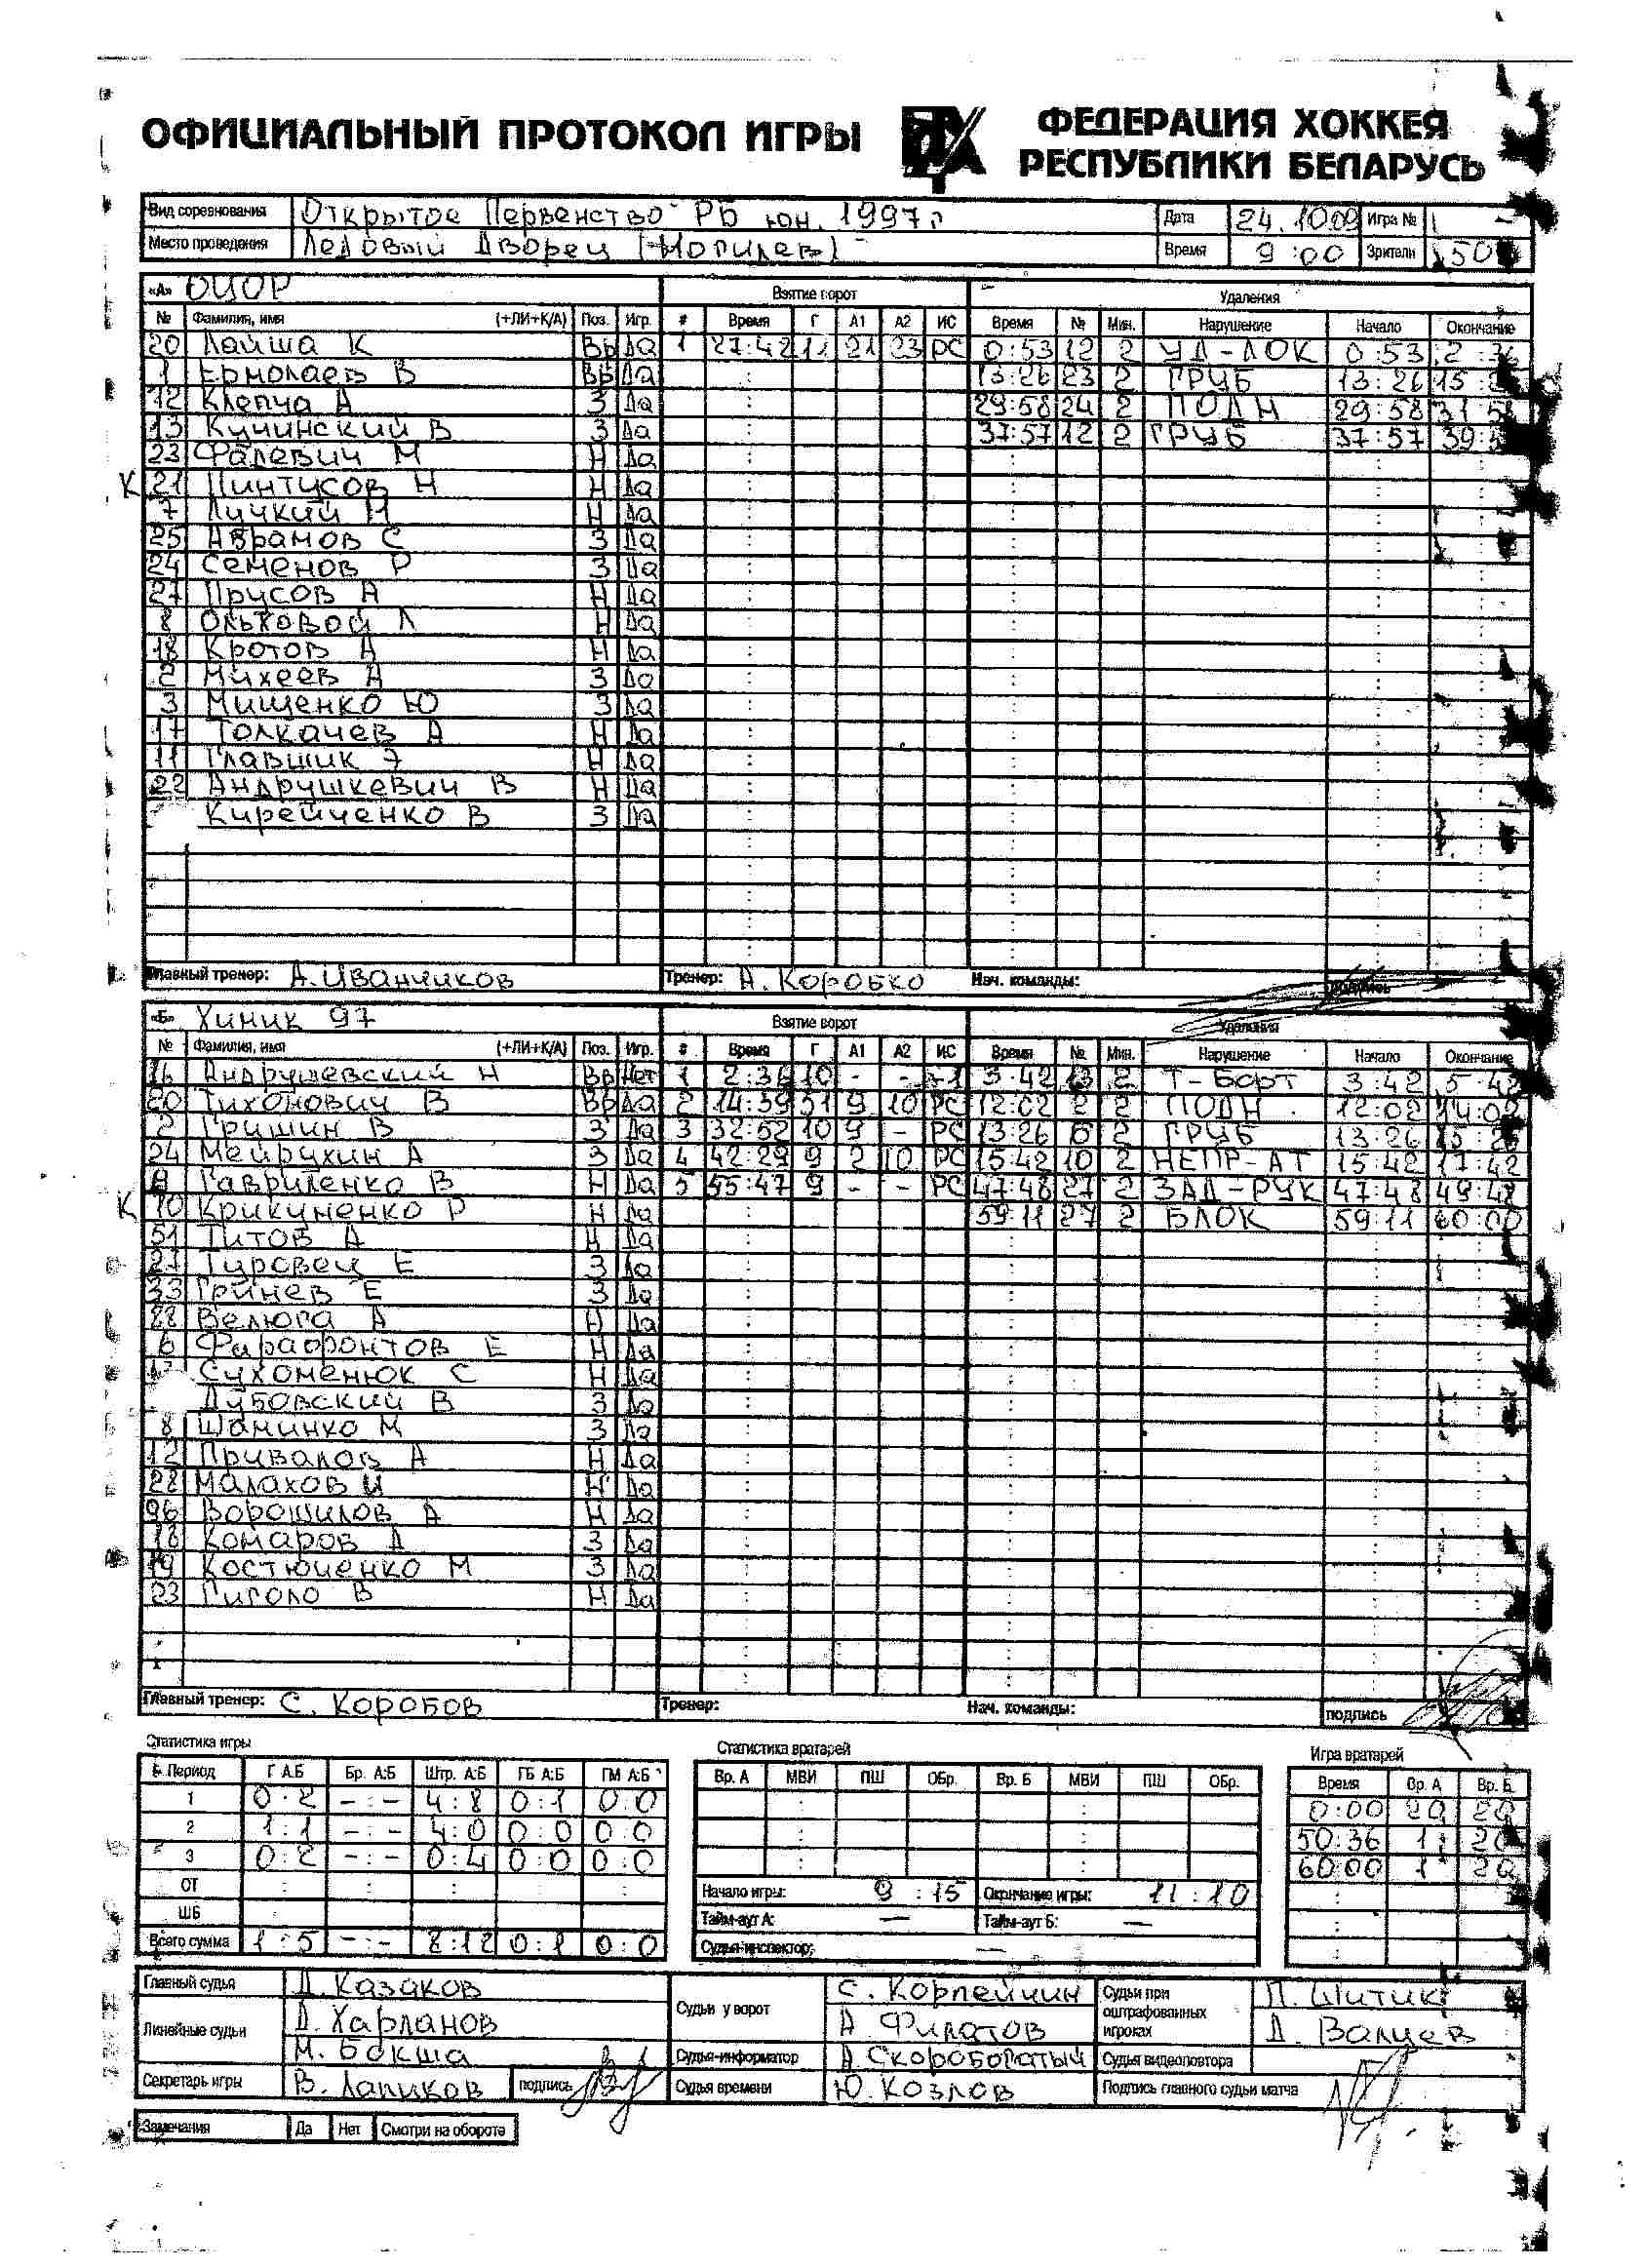 ОФИЦИАЛЬНЫЙ ПРОТОКОЛ ИГРЫ
ФЕДЕРАЦИЯ ХОККЕЯ
РЕСПУБЛИКИ БЕЛАРУСЬ
Вид соревнования Открытое Первенство РБ юн. 1997г Дата 24.10.09 Игра № 1
Место проведения Ледовый Дворец (Могилев) Время 9:00 Зрители 50
«А» ОЦОР Взятие ворот Удаления
№ Фамилия, имя (+ЛИ+К/А) Поз. Игр. # Время Г А1 А2 ИС Время № Мин. Нарушение Начало Окончание
20 Лайша К Вр Да 1 27:42 11 21 23 РС 0:53 12 2 УД-ЛОК 0:53 2:36
1 Ермолаев В Вр Да 13:26 23 2 ГРУБ 13:26 15:
12 Клепча А З Да 29:58 24 2 ПОДН 29:58 31:58
13 Кучинский В З Да 37:57 12 2 ГРУБ 37:57 39:
23 Фалевич М Н Да
К 21 Пинтусов Н Н Да
7 Личкий Н Да
25 Абрамов С З Да
24 Семенов Р З Да
27 Прусов А Н Да
8 Ольховой Л Н Да
18 Кротов А Н Да
2 Михеев А З Да
3 Мищенко Ю З Да
17 Толкачев А Н Да
11 Главщик Э Н Да
22 Андрушкевич В Н Да
Кирейченко В З Да
Главный тренер: А. Иванчиков Тренер: А. Коробко Нач. команды: подпись
«Б» Химик 97 Взятие ворот Удаления
№ Фамилия, имя (+ЛИ+К/А) Поз. Игр. # Время Г А1 А2 ИС Время № Мин. Нарушение Начало Окончание
16 Андрушевский Н Вр Нет 1 2:36 10 - - +1 3:42 2 Т-Борт 3:42 5:42
20 Тихонович В Вр Да 2 14:39 51 9 10 РС 12:02 2 2 ПОДН 12:02 14:02
2 Гришин В З Да 3 32:52 10 9 - РС 13:26 6 2 ГРУБ 13:26 15:26
24 Мейрухин А З Да 4 42:29 9 2 10 РС 15:42 10 2 НЕПР-АТ 15:42 17:42
9 Гавриленко В Н Да 5 55:47 9 - - РС 47:48 27 2 ЗАД-РУК 47:48 49:48
К 10 Крикуненко Р Н Да 59:11 27 2 БЛОК 59:11 60:00
51 Титов А Н Да
27 Туровец Е З Да
33 Гринев Е З Да
Велюга А Н Да
6 Фарафонтов Е Н Да
Сухоменюк С Н Да
Дубовский В З Да
8 Шаминко М З Да
12 Привалов А Н Да
22 Малахов И Н Да
96 Ворошилов А Н Да
18 Комаров Д З Да
19 Костюченко М З Да
23 Гиголо В Н Да
Главный тренер: С. Коробов Тренер: Нач. команды: подпись
Статистика игры Статистика вратарей Игра вратарей
Период Г А:Б Бр. А:Б Штр. А:Б ГБ А:Б ГМ А:Б Вр. А МВИ ПШ ОБр. Вр. Б МВИ ПШ ОБр. Время Вр. А Вр. Б
1 0:2 -:- 4:8 0:1 0:0 0:00 20 20
2 1:1 -:- 4:0 0:0 0:0 50:36 1 20
3 0:2 -:- 0:4 0:0 0:0 60:00 1 20
ОТ Начало игры: 9:15 Окончание игры: 11:10
ШБ Тайм-аут А: — Тайм-аут Б: —
Всего сумма 1:5 -:- 8:12 0:1 0:0 Судья-инспектор: —
Главный судья Д. Казаков Судьи у ворот С. Корпейчин Судьи при оштрафованных игроках П. Шитик
Линейные судьи Д. Харланов А Филатов Д. Валуев
М. Бокша Судья-информатор А Скоробогатый Судья видеоповтора
Секретарь игры В. Лапиков подпись Судья времени Ю. Козлов Подпись главного судьи матча
Замечания Да Нет Смотри на обороте